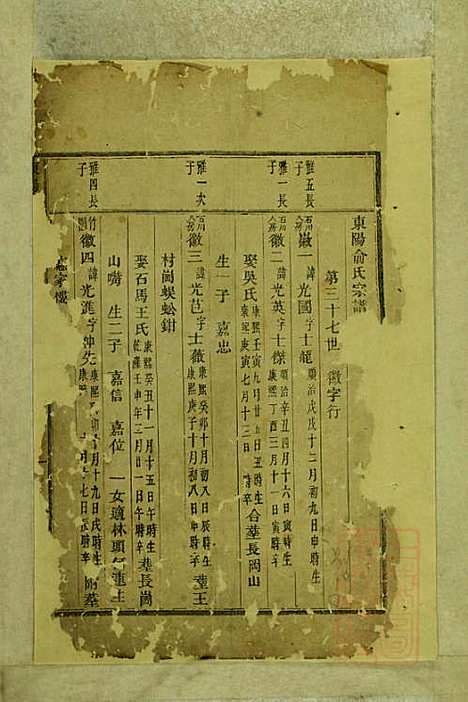 東陽俞氏宗譜
第三十七世 徽字行
雅五長子
徽一 諱光國字士龍 順治戊戌十二月初九日申時生
雅一長子
徽二 諱光英字士傑 順治辛丑四月十六日寅時生 康熙丁酉三月十一日寅時卒
娶吳氏 康熙壬寅九月廿五日丑時生 康熙庚寅七月十三日時卒 合塟長岡山
生一子 嘉忠
雅一次子
徽三 諱光芑字士薇 康熙癸卯十月初八日辰時生 康熙庚子十月初八日時卒 塟王
村岡蜈蚣鉗
娶石馬王氏 康熙癸丑十一月十五日午時生 乾隆壬申年三月廿一日午時卒 塟長崗
山嘴 生二子 嘉信 嘉位 一女適林頭
雅四長子
徽四 諱光進字沖先 康熙 月十九日戌時生 康熙 月十七日辰時卒 塟